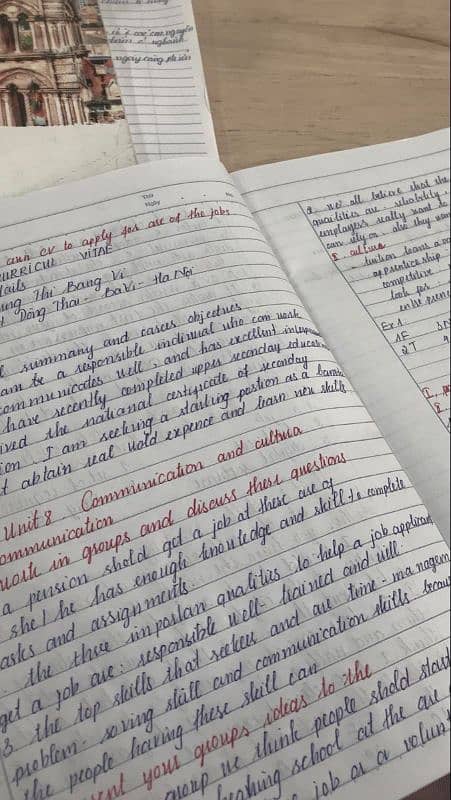 ngày càng
Thứ
Ngày
No
cv to apply for are of the jobs
CURRICUL VITAE
Thị Bang Vi
Đông Thai - BaVi - Ha Nội
summary and cases objectues
am te a responsible indiviual who can work
communicates well, and has excellent
have recently completed upper seconday
ived the national certificate of seconday
ion. I am seeking a starling postion as a
t abtain real wold expence and learn new skills
Unit 8. Communication and cultura
ommunication
work in groups and discuss these questions
a pension shold get a job at these are of
she / he has enough knowledge and skill to complete
asks and assignments.
the three inportan qualities to help a job applicant
get a job are: responsible well-trained and well.
3. the top skills that seekers and are time-managem
problem-soving stall and communication skills becau
the people having these skill can
ent your groups ideas to the
group we think people shold star
school at the are
job as a volun
2. we all believe that the
qualities are reliability.
employers really want to
can rely on also they
I. cultura
apprenticeship
competitive
look for
Ex 1.